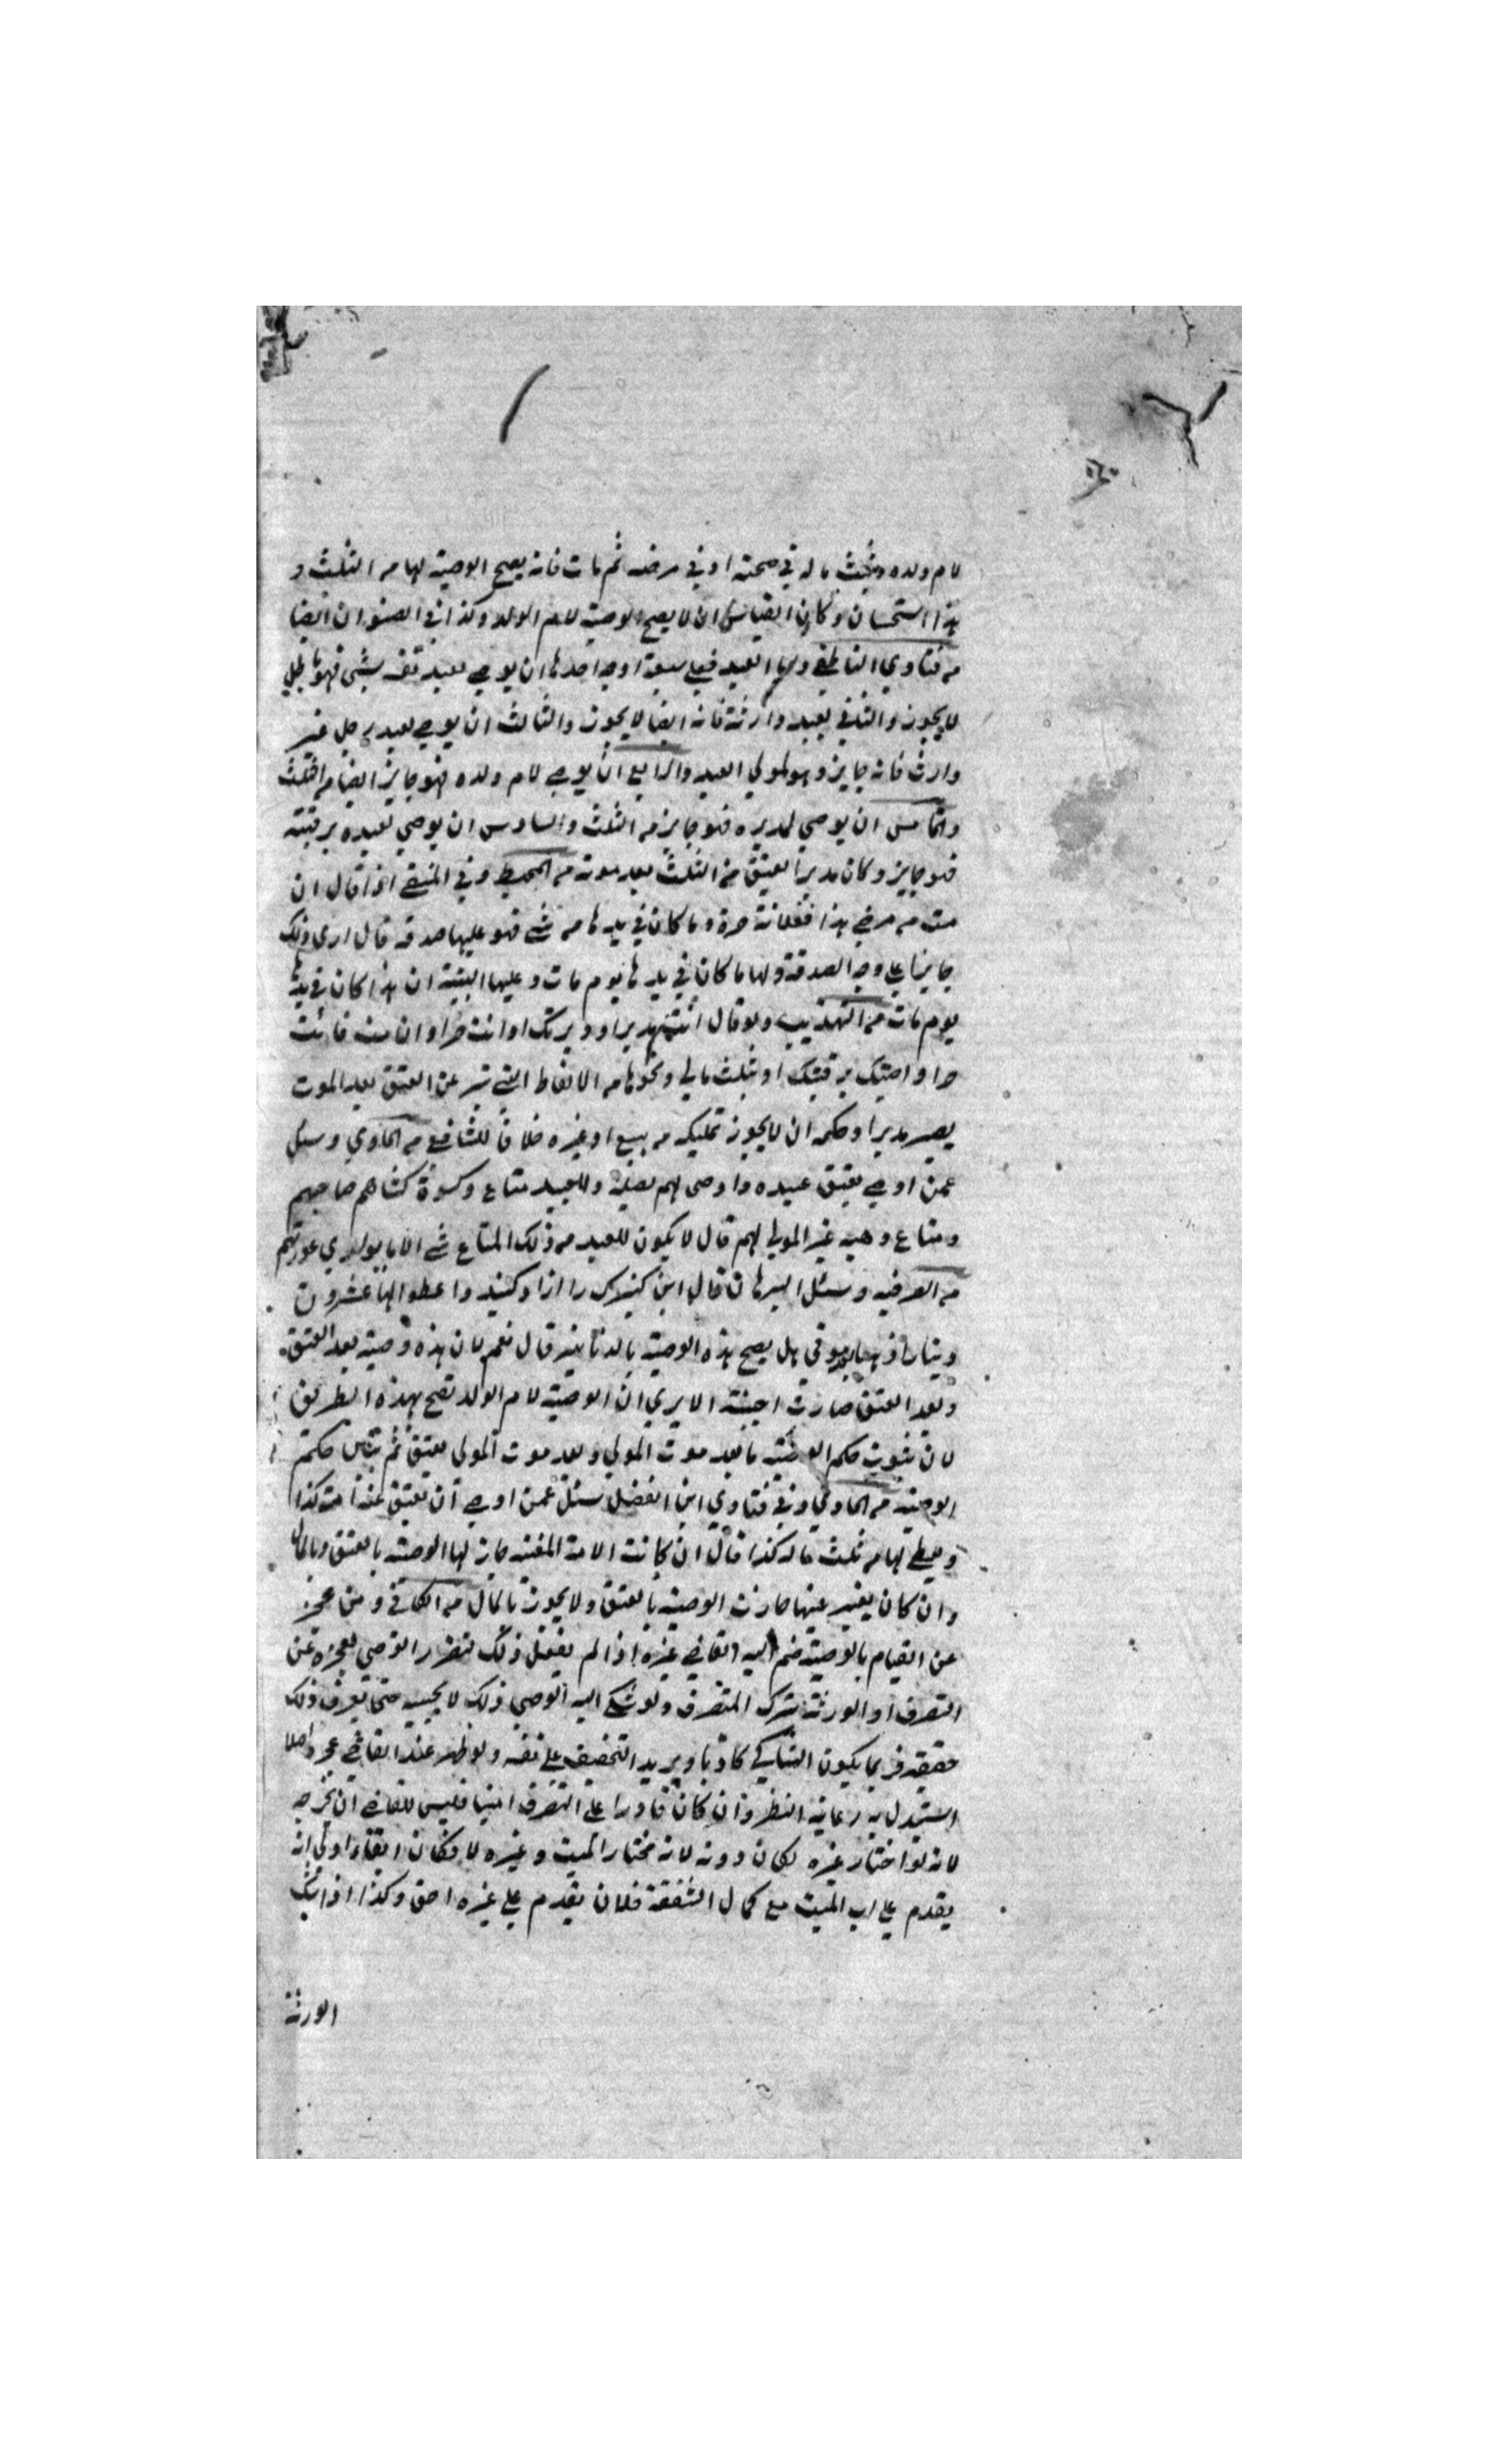 لام ولده بثلث ماله في صحته او في مرضه ثم مات فانه يصح الوصية لها من الثلث و
هذا استحسان وكان القياس ان لا يصح الوصية لام الولد وكذا في الصنوان ايضا
من فتاوي الناطفي وصايا العبد فعلي سبعة اوجه احدها ان يوصي لعبد نفسه بشئ فهو باطل
لا يجوز والثاني لعبد وارثه فانه ايضا لا يجوز والثالث ان يوصي لعبد رجل غير
وارث فانه جايز وهو لمولي العبد والرابع ان يوصي لام ولده فهو جايز ايضا من الثلث
والخامس ان يوصي لمدبره فهو جايز من الثلث والسادس ان يوصي لعبده برقبته
فهو جايز وكان مدبرا يعتق من الثلث بعد موته من المحيط وفي المنتقي اذا قال ان
مت من مرضي هذا ففلانة حرة وما كان في يدها من شئ فهو عليها صدقة قال اري ذلك
جايزا علي وجه الصدقة ولها ما كان في يدها يوم مات وعليها البينة ان هذا كان في يدها
يوم مات من التهذيب ولو قال انت مدبر او دبرتك او انت حر او ان مت فانت
حر او اوصيتك برقبتك او بثلث مالي ونحوها من الالفاظ التي عن العتق بعد الموت
يصير مدبرا وحكمه ان لا يجوز تمليكه من بيع او غيره خلافا للشافعي من الحاوي وسئل
عمن اوصي بعتق عبيده واوصي لهم بصلة وللعبيد متاع وكسوة كساهم صاحبهم
ومتاع وهبه غير المولي لهم قال لا يكون للعبد من ذلك المتاع شئ الا ما يواري عورتهم
من وسئل قال اين كنيزك را ازاد كنيد واعطوا لها عشرون
دينارا هل يصح هذه الوصية بالدنانير قال نعم لان هذه وصية بعد العتق
وبعد العتق صارت اجنبية الا يري ان الوصية لام الولد تصح بهذه الطريق
لان ثبوت حكم الوصية ما بعد موت المولي وبعد موت المولي يعتق ثم حكم
الوصية من الحاوي وفي فتاوي ابن الفضل سئل عمن اوصي ان يعتق عنه امته كذا
ويعطي لها من ثلث ماله كذا قال ان كانت الامة المعينة جاز لها الوصية بالعتق وبالمال
وان كان بغير عينها جازت الوصية بالعتق ولا يجوز بالمال من الكافي ومن عجز
عن القيام بالوصية ضم اليه القاضي غيره اذا لم يفعل ذلك تضرر الوصي بعجزه عن
التصرف او الورثة بترك التصرف ولو شكي اليه الوصي ذلك لا يجيبه حتي يعرف ذلك
حقيقة فربما يكون الشاكي كاذبا ويريد التخفيف علي نفسه ولو ظهر عند القاضي عجزه اصلا
استبدل به رعاية النظر وان كان قادرا علي التصرف امينا فليس للقاضي ان يخرجه
لانه لو اختار غيره لكان دونه لانه مختار الميت وغيره لا فكان ابقاؤه اولي انه
يقدم علي اب الميت مع كمال الشفقة فلان يقدم علي غيره احق وكذا اذا شك
الورثة